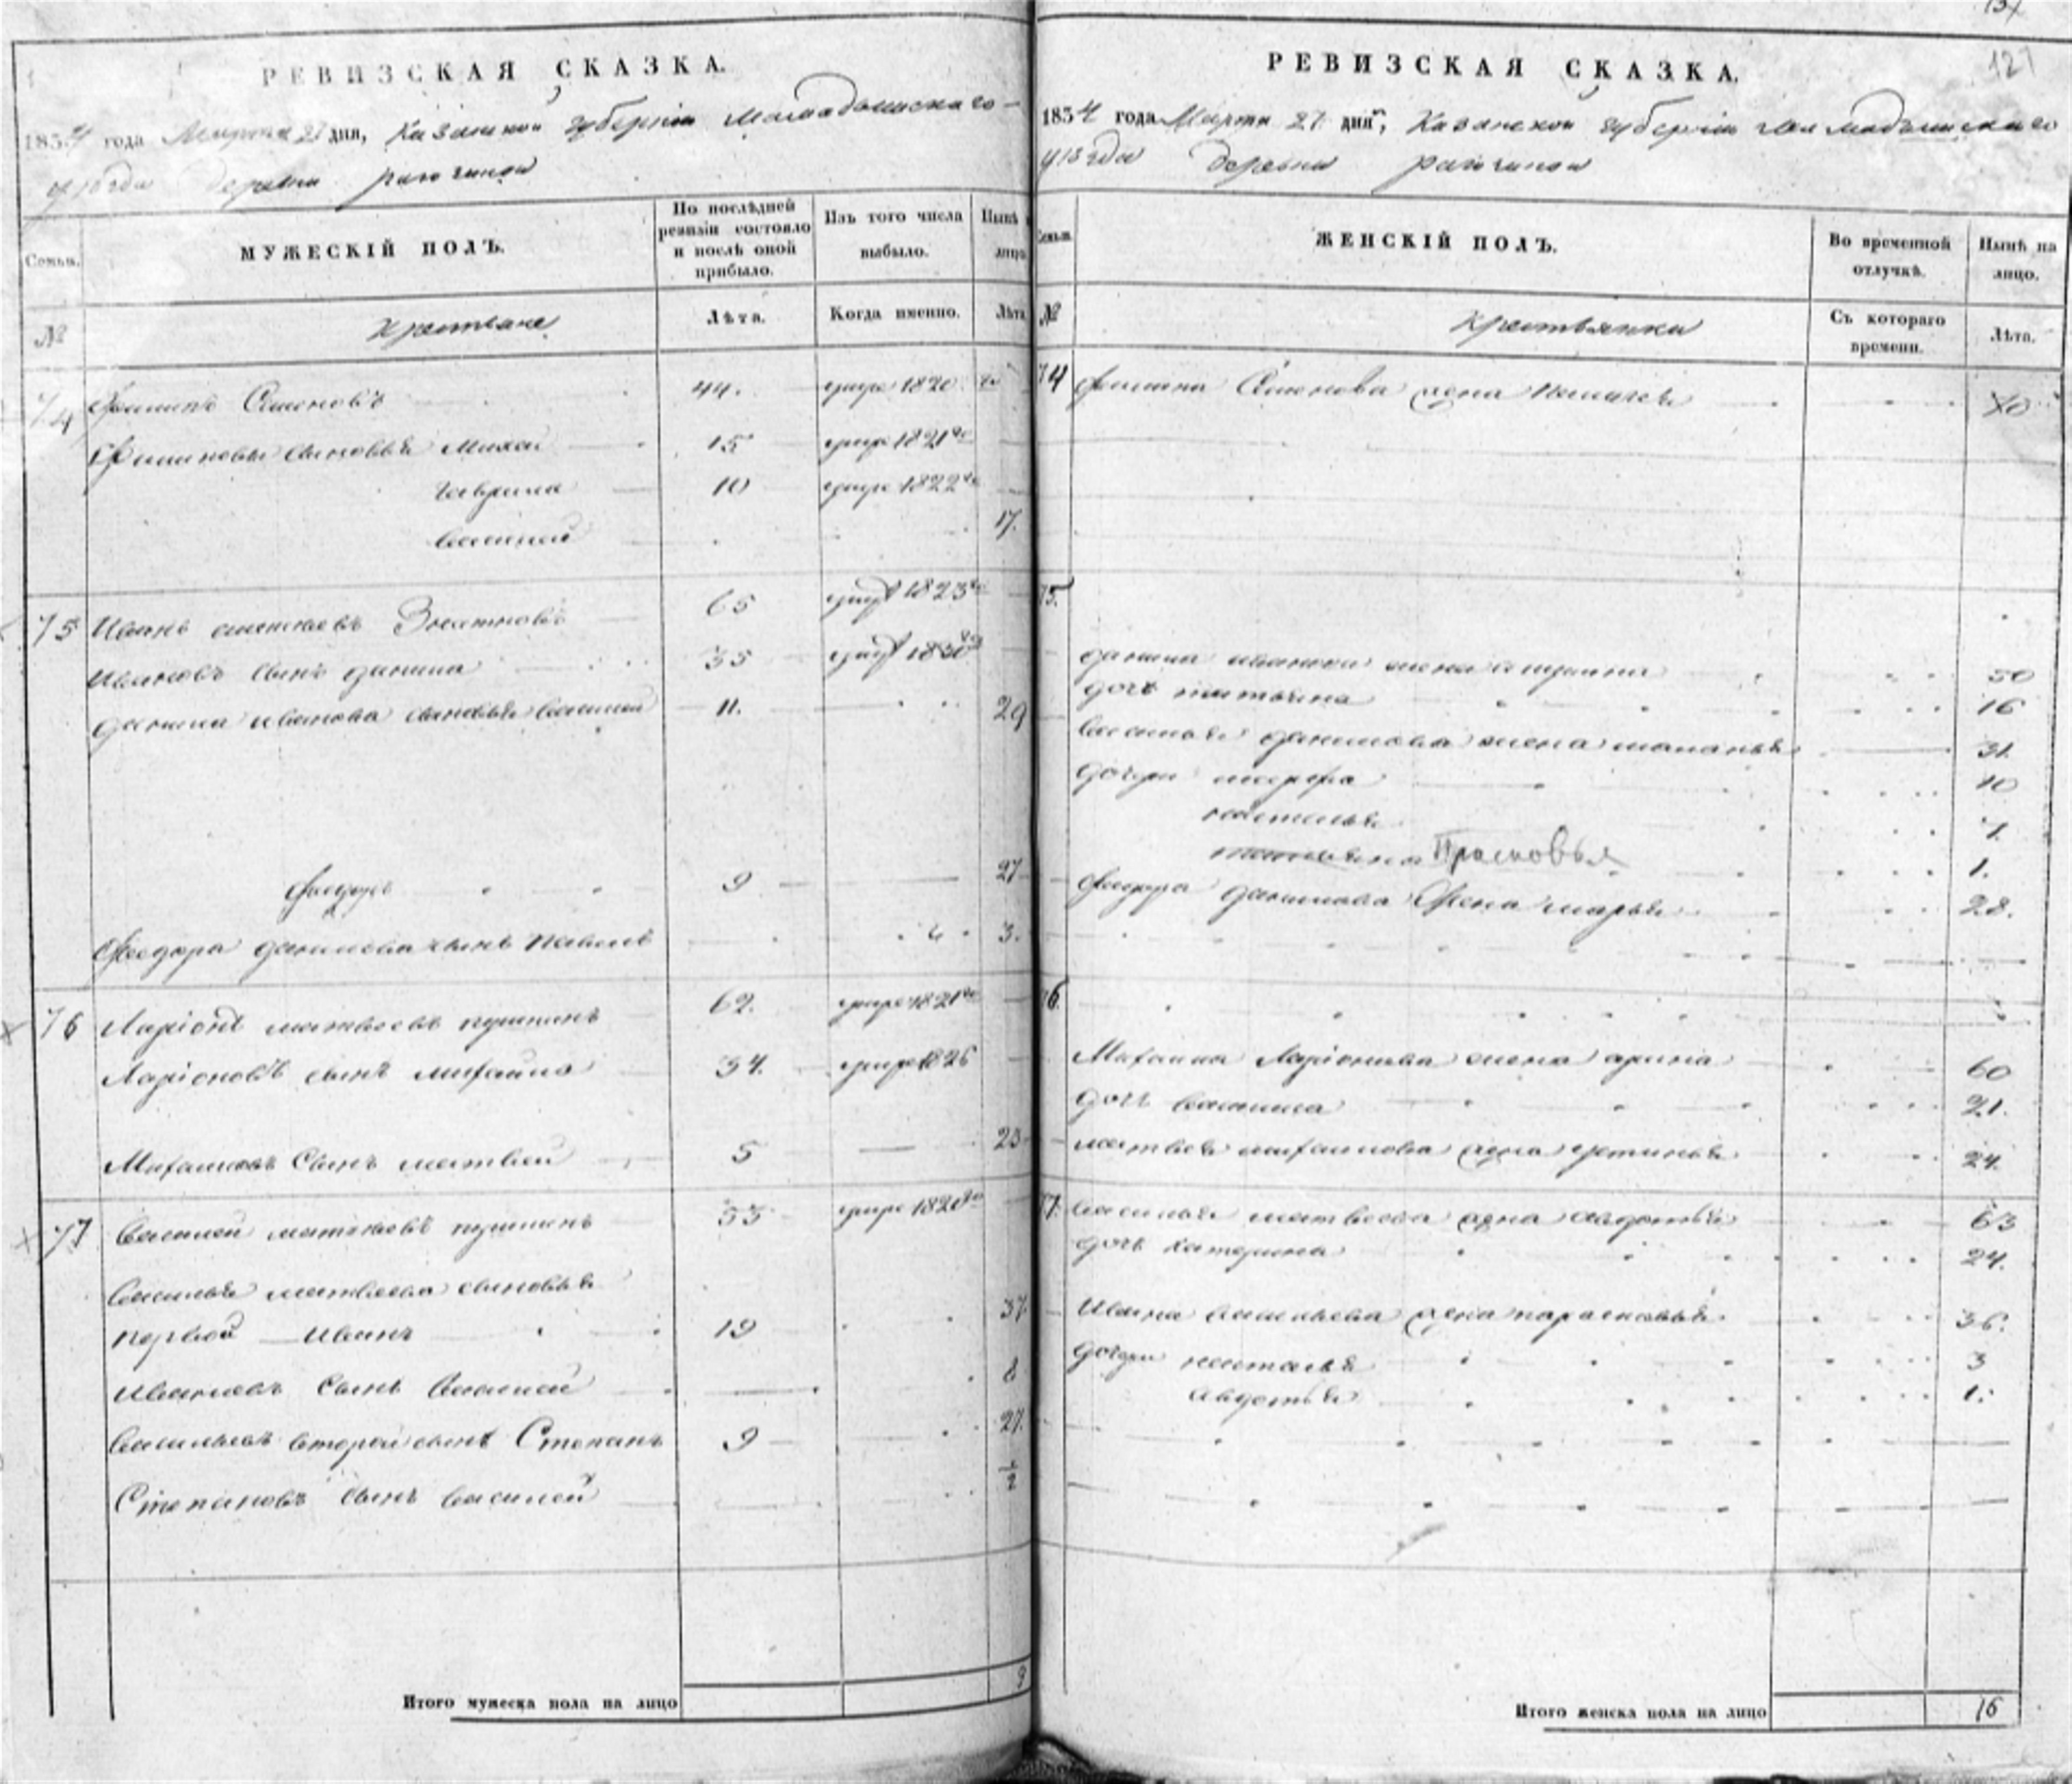 РЕВИЗСКАЯ СКАЗКА.
1834 года Марта 27 дня, Казанской губернии Мамадышскаго
уѣзда деревни
Семьи.
МУЖЕСКІЙ ПОЛЪ.
По послѣдней ревизіи состояло и послѣ оной прибыло.
Изъ того числа выбыло.
Нынѣ
лицо
№
Крестьяне
Лѣта.
Когда именно.
Лѣта
74 Филипъ Семеновъ 44. умре 1820 го
Филиповы сыновья Михей 15 умре 1821 го
Гаврила 10 умре 1822 го
Василей 17.
75 Иванъ 65 умре 1823 го
Ивановъ сынъ Данила 35 умре 1830 го
Данила Иванова сыновья Василей 11. 29
Федоръ 9 27
Федора Данилова сынъ Павелъ 3.
76 Ларіонъ Матвеевъ Пушкинъ 62. умре 1821 го
Ларіоновъ сынъ Михайла 34. умре 1826
Михайловъ сынъ Матвей 5 23
77 Василей Матвеевъ Пушкинъ 53 умре 1820 го
Василья Матвеева сыновья
первой Иванъ 19 37
Ивановъ сынъ Василей
Васильевъ второй сынъ Степанъ 9 27.
Степановъ сынъ Василей 1/2
Итого мужеска пола на лицо 9
127
РЕВИЗСКАЯ СКАЗКА.
1834 года Марта 27 дня, Казанской губерніи Мамадышскаго
уѣзда деревни
Семьи.
ЖЕНСКІЙ ПОЛЪ.
Во временной отлучкѣ.
Нынѣ на лицо.
№
Крестьянки
Съ котораго времени.
Лѣта.
74 Филипа Семенова жена Пелагея
75.
Данила Иванова жена 50
дочь Татьяна 16
Василья Данилова жена Маланья 31.
дочери Марфа 10
Наталья 7.
Прасковья 1.
Федора Данилова жена Марья 28.
76.
Михайла Ларіонова жена Арина 60
дочь Василиса 21.
Матвея Михайлова жена Устинья 24.
77. Василья Матвеева жена Авдотья 63
дочь Катерина 24.
Ивана Васильева жена Парасковья 36.
дочери Наталья 3
Авдотья 1.
Итого женска пола на лицо 16